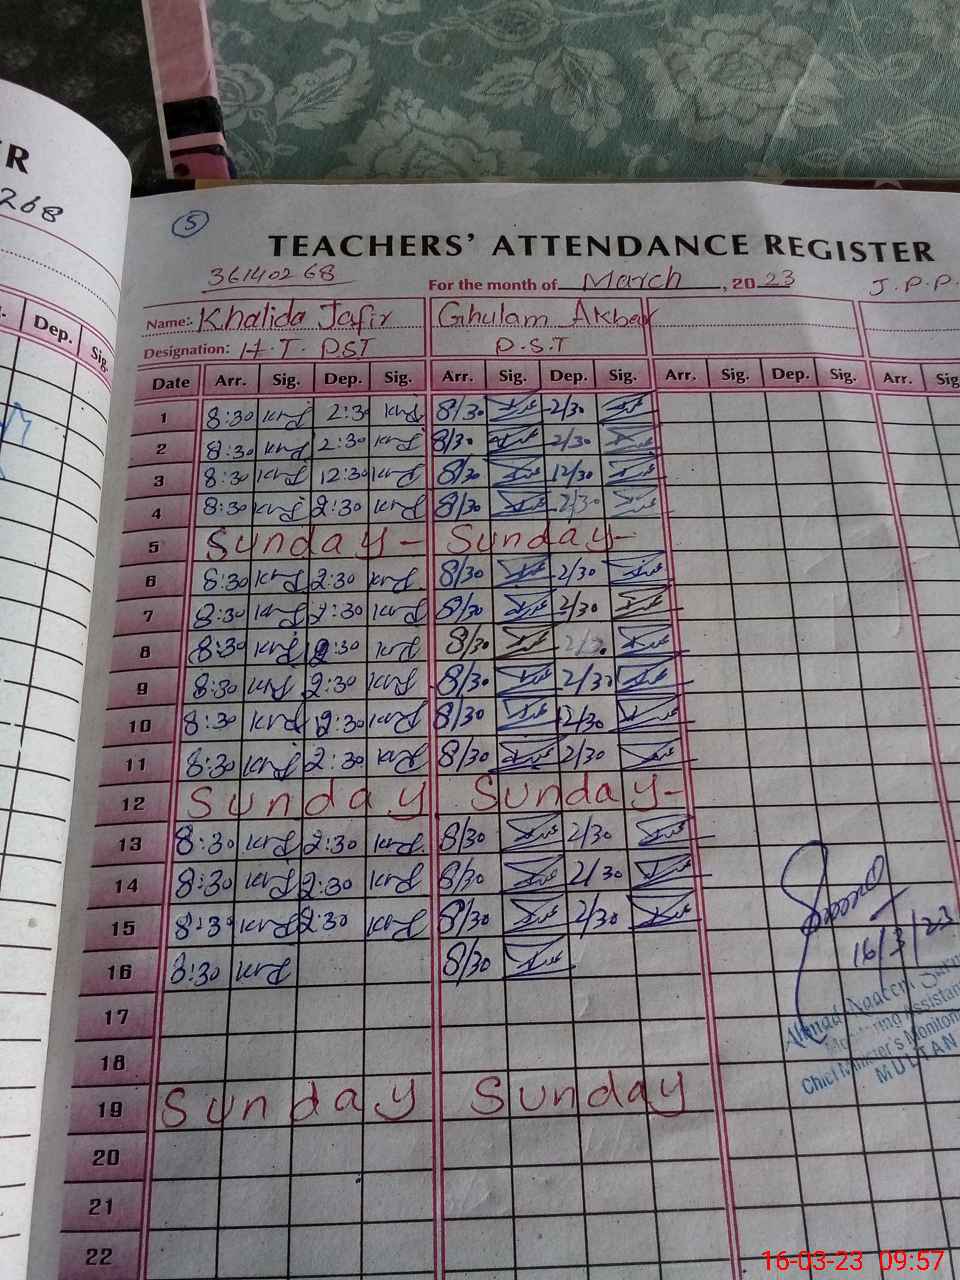 ER
268
Dep.
Sig.
5
TEACHERS' ATTENDANCE REGISTER
36140268
For the month of March, 2023
J.P.P.
Name:- Khalida Jafir Ghulam Akbar
Designation: H.T. PST P.S.T
Date Arr. Sig. Dep. Sig. Arr. Sig. Dep. Sig. Arr. Sig. Dep. Sig. Arr. Sig
1 8:30 2:30 8/30 2/30
2 8:30 2:30 8/30 2/30
3 8:30 12:30 8/30 12/30
4 8:30 2:30 8/30 2/30
5 Sunday - Sunday-
6 8:30 2:30 8/30 2/30
7 8:30 2:30 8/30 2/30
8 8:30 2:30 8/30 2/30
9 8:30 2:30 8/30 2/30
10 8:30 12:30 8/30 12/30
11 8:30 2:30 8/30 2/30
12 Sunday Sunday-
13 8:30 2:30 8/30 2/30
14 8:30 2:30 8/30 2/30
15 8:30 2:30 8/30 2/30
16 8:30 8/30
17
18
19 Sunday Sunday
20
21
22
16/3/23
Ahmad Naeem
Monitoring Assistan
Chief Minister's Monitor
MULTAN
16-03-23 09:57